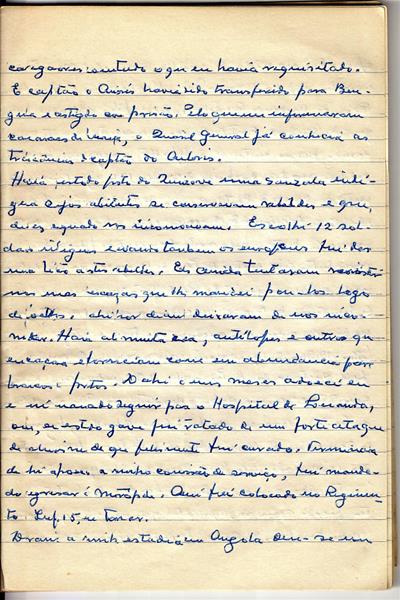 carregadores contudo o que eu havia requisitado.
E captão o Aviris havia sido transferido para Ben-
guia e castigdo com prisão. Pelo que me informaram
, o Quartel General já conhecia as
do captão do Aviris.
Havia, perto do forte do uma sanzala indí-
gena cujos abitantes se conservavam rebeldes e que,
de quando nos incomodavam. Escolhi 12 sol-
dados indígenas e levando tambem os europeus fui dar
uma lição a estes rebeldes. Eles ainda tentaram resistir
nos mas as cargas que lhe mandei por-los logo
de . dahi por diante deixaram de nos incomo-
dar. Havia ali muita caça, antílopes e outros que
eu caçava e forneciam carne em abundancia para
brancos e pretos. Dahi a uns meses adoeci eu
e fui mandado seguir para o Hospital de Louanda,
onde, eu estado grave fui tratado de um forte ataque
de de que felizmente fui curado. Terminara
de ahi apouco a minha comissão de serviço, fui manda-
do regressar á Metrópole. Aqui fui colocado no Regimen-
to Inf. 15, em Tomar.
Durante a minha estadia em Angola deu-se um